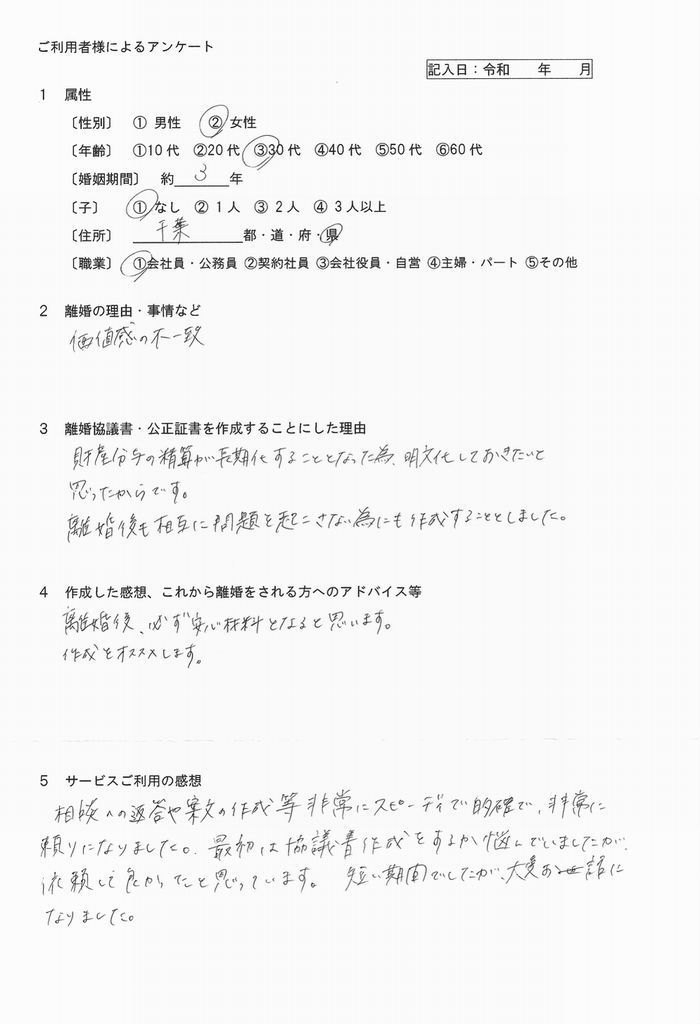 ご利用者様によるアンケート
記入日：令和　　年　　月
1　属性
〔性別〕　① 男性　② 女性
〔年齢〕　①10代　②20代　③30代　④40代　⑤50代　⑥60代
〔婚姻期間〕　約 3 年
〔子〕　① なし　② 1人　③ 2人　④ 3人以上
〔住所〕　千葉　都・道・府・県
〔職業〕　①会社員・公務員 ②契約社員 ③会社役員・自営 ④主婦・パート ⑤その他
2　離婚の理由・事情など
価値感の不一致
3　離婚協議書・公正証書を作成することにした理由
財産分与の精算が長期化することとなった為、明文化しておきたいと
思ったからです。
離婚後も相互に問題を起こさない為にも作成することとしました。
4　作成した感想、これから離婚をされる方へのアドバイス等
離婚後、必ず安心材料となると思います。
作成をオススメします。
5　サービスご利用の感想
相談への返答や案文の作成等非常にスピーディで的確で、非常に
頼りになりました。最初は協議書作成をするか悩んでいましたが、
依頼して良かったと思っています。　短い期間でしたが、大変お世話に
なりました。